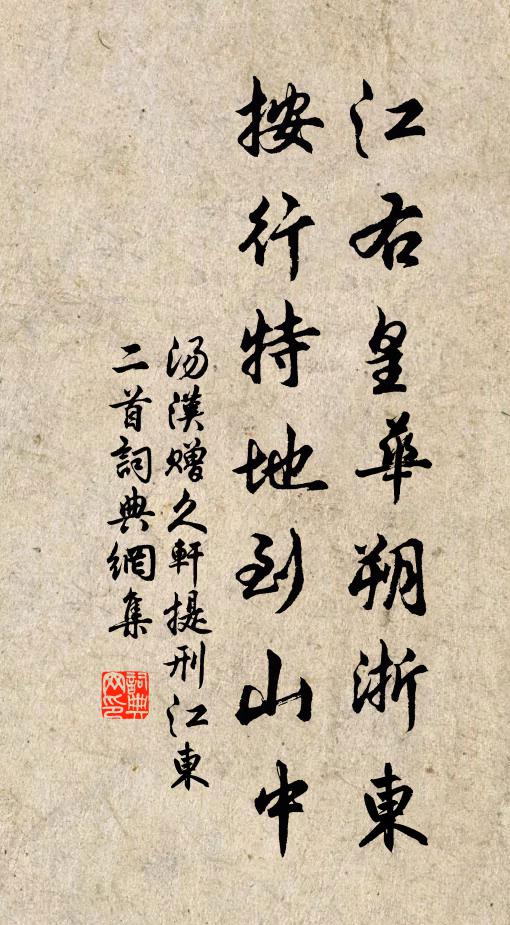 江右皇華朔浙東
按行特地到山中
汤漢贈久軒提刑江東
二首詞典網集
詞典網印